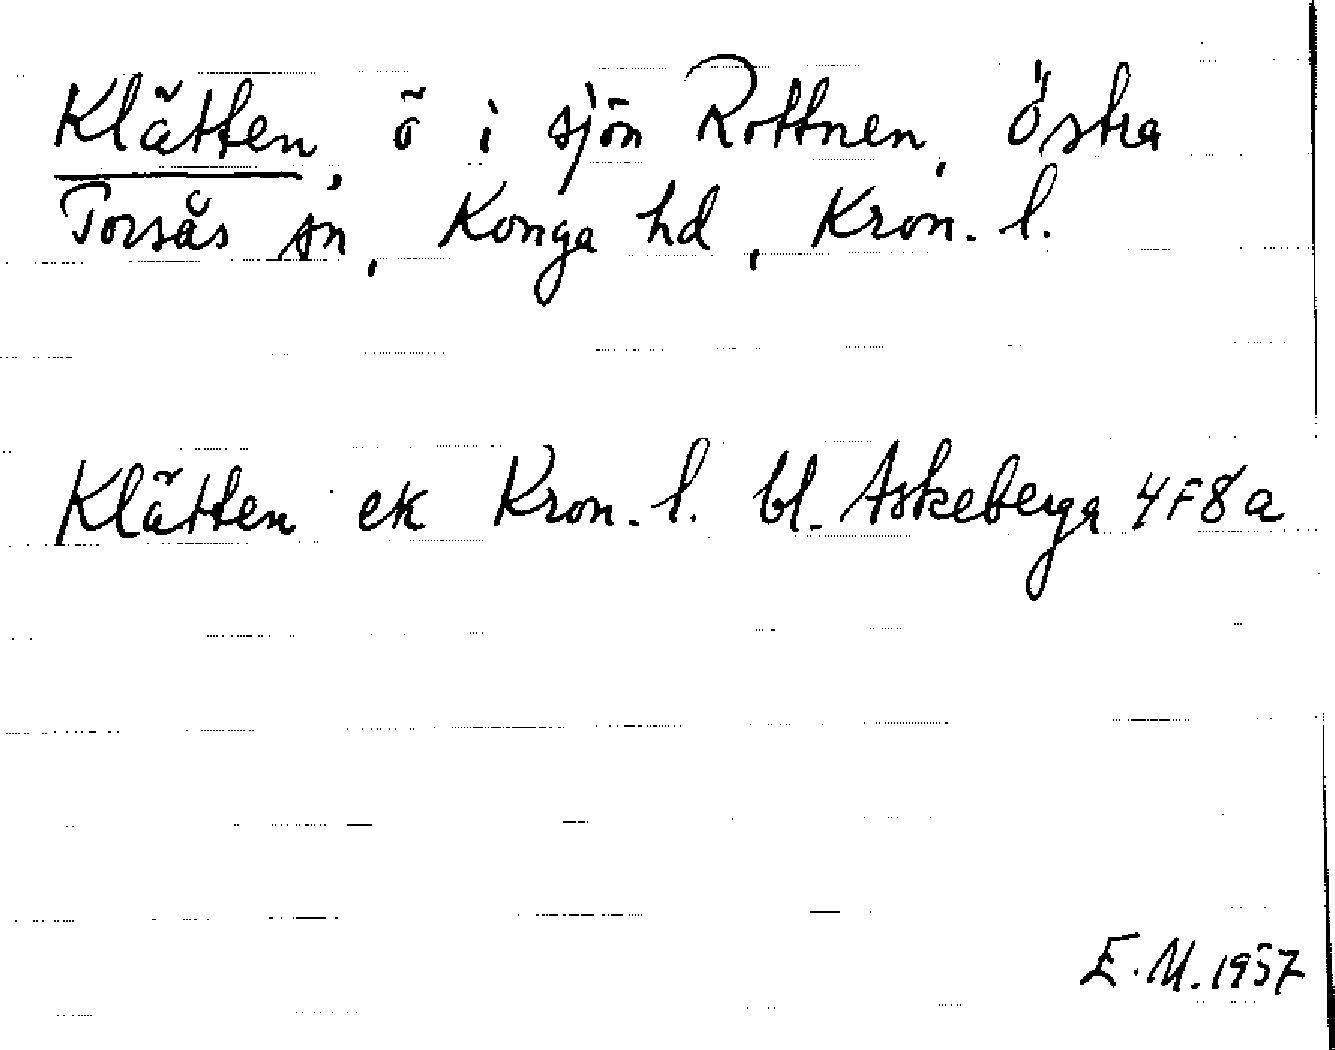 Klätten, ö i sjön Rottnen, Östra
Torsås sn, Konga hd, Kron. l.
Klätten ek Kron. l. bl. Askeberga 4F8a
E.M. 1957